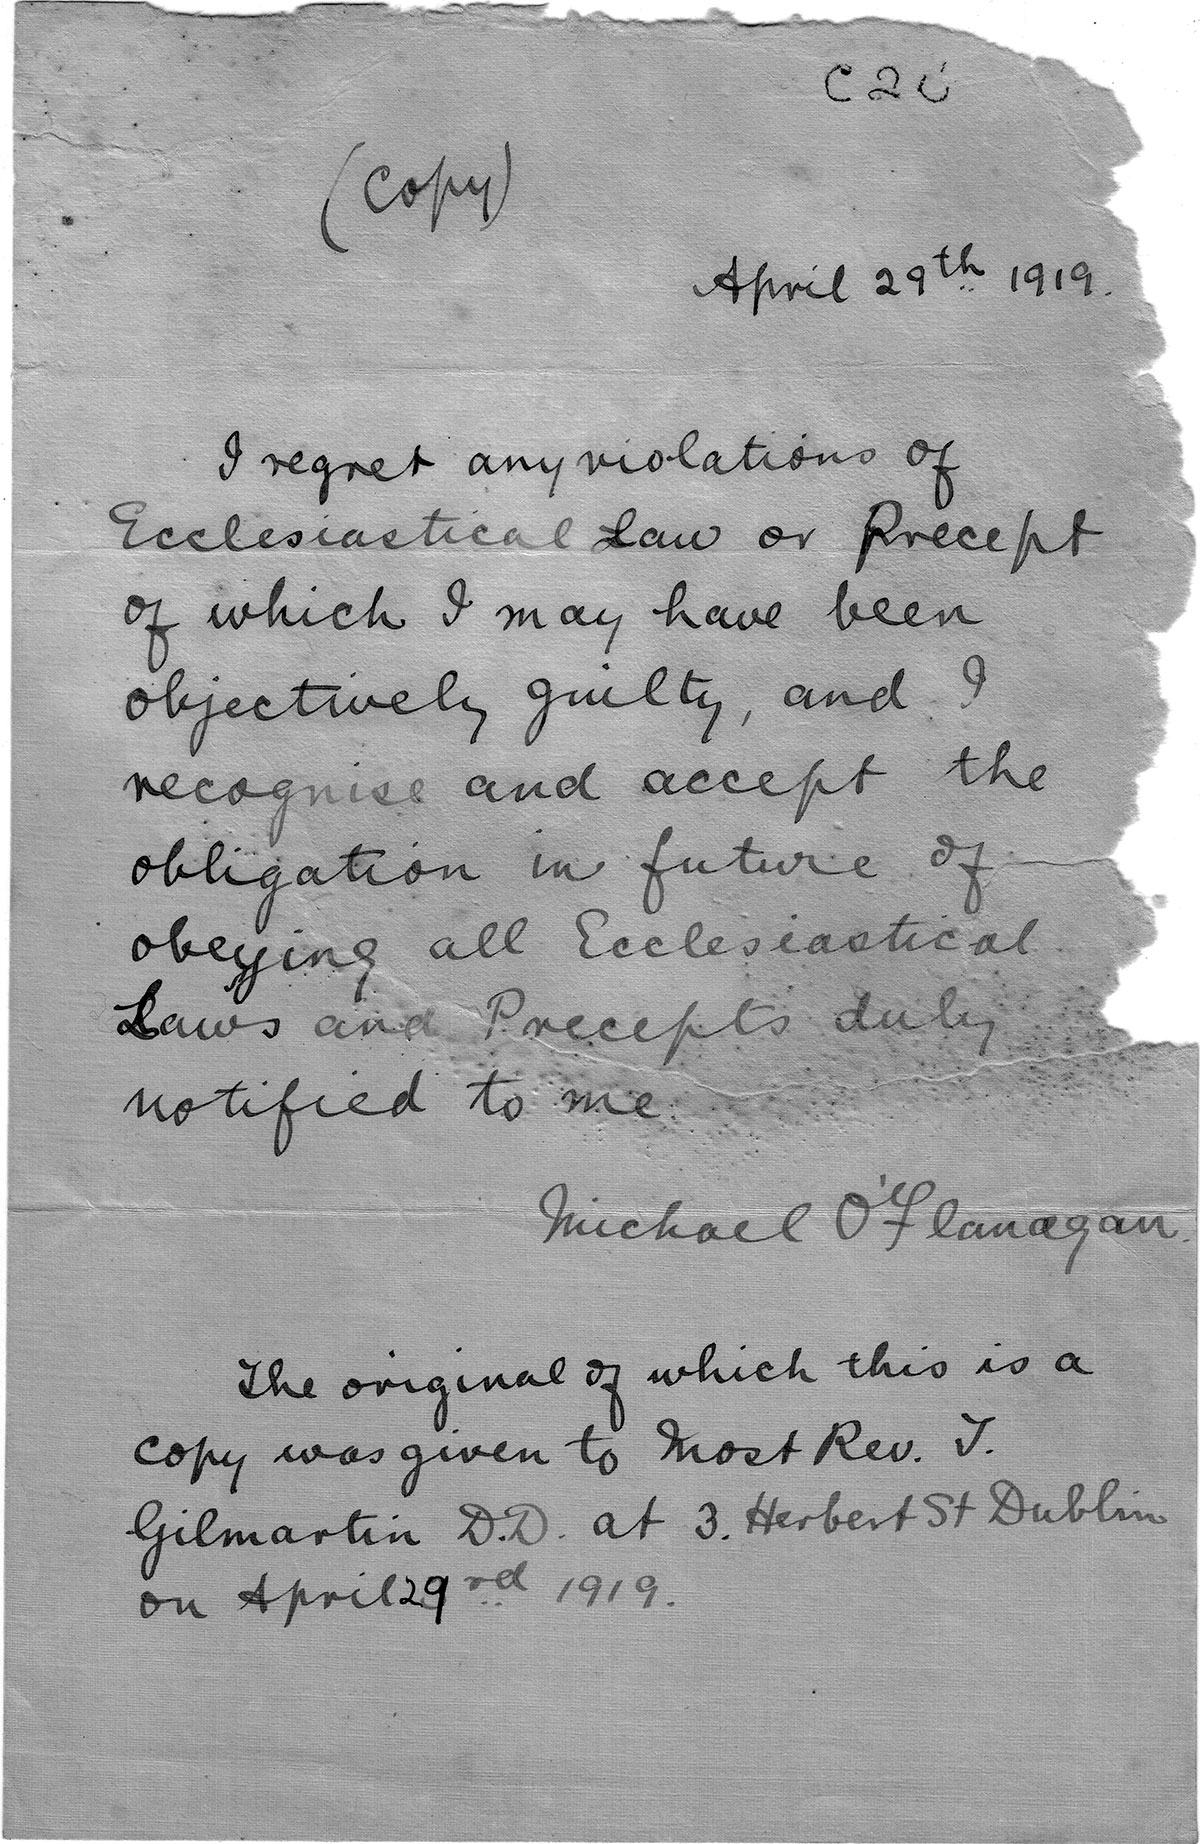 (Copy)
April 29th 1919.
I regret any violations of
Ecclesiastical Law or Precept
of which I may have been
objectively guilty, and I
recognise and accept the
obligation in future of
obeying all Ecclesiastical
Laws and Precepts duly
notified to me.
Michael O'Flanagan.
The original of which this is a
copy was given to Most Rev. T.
Gilmartin D.D. at 3. Herbert St Dublin
on April 29rd 1919.